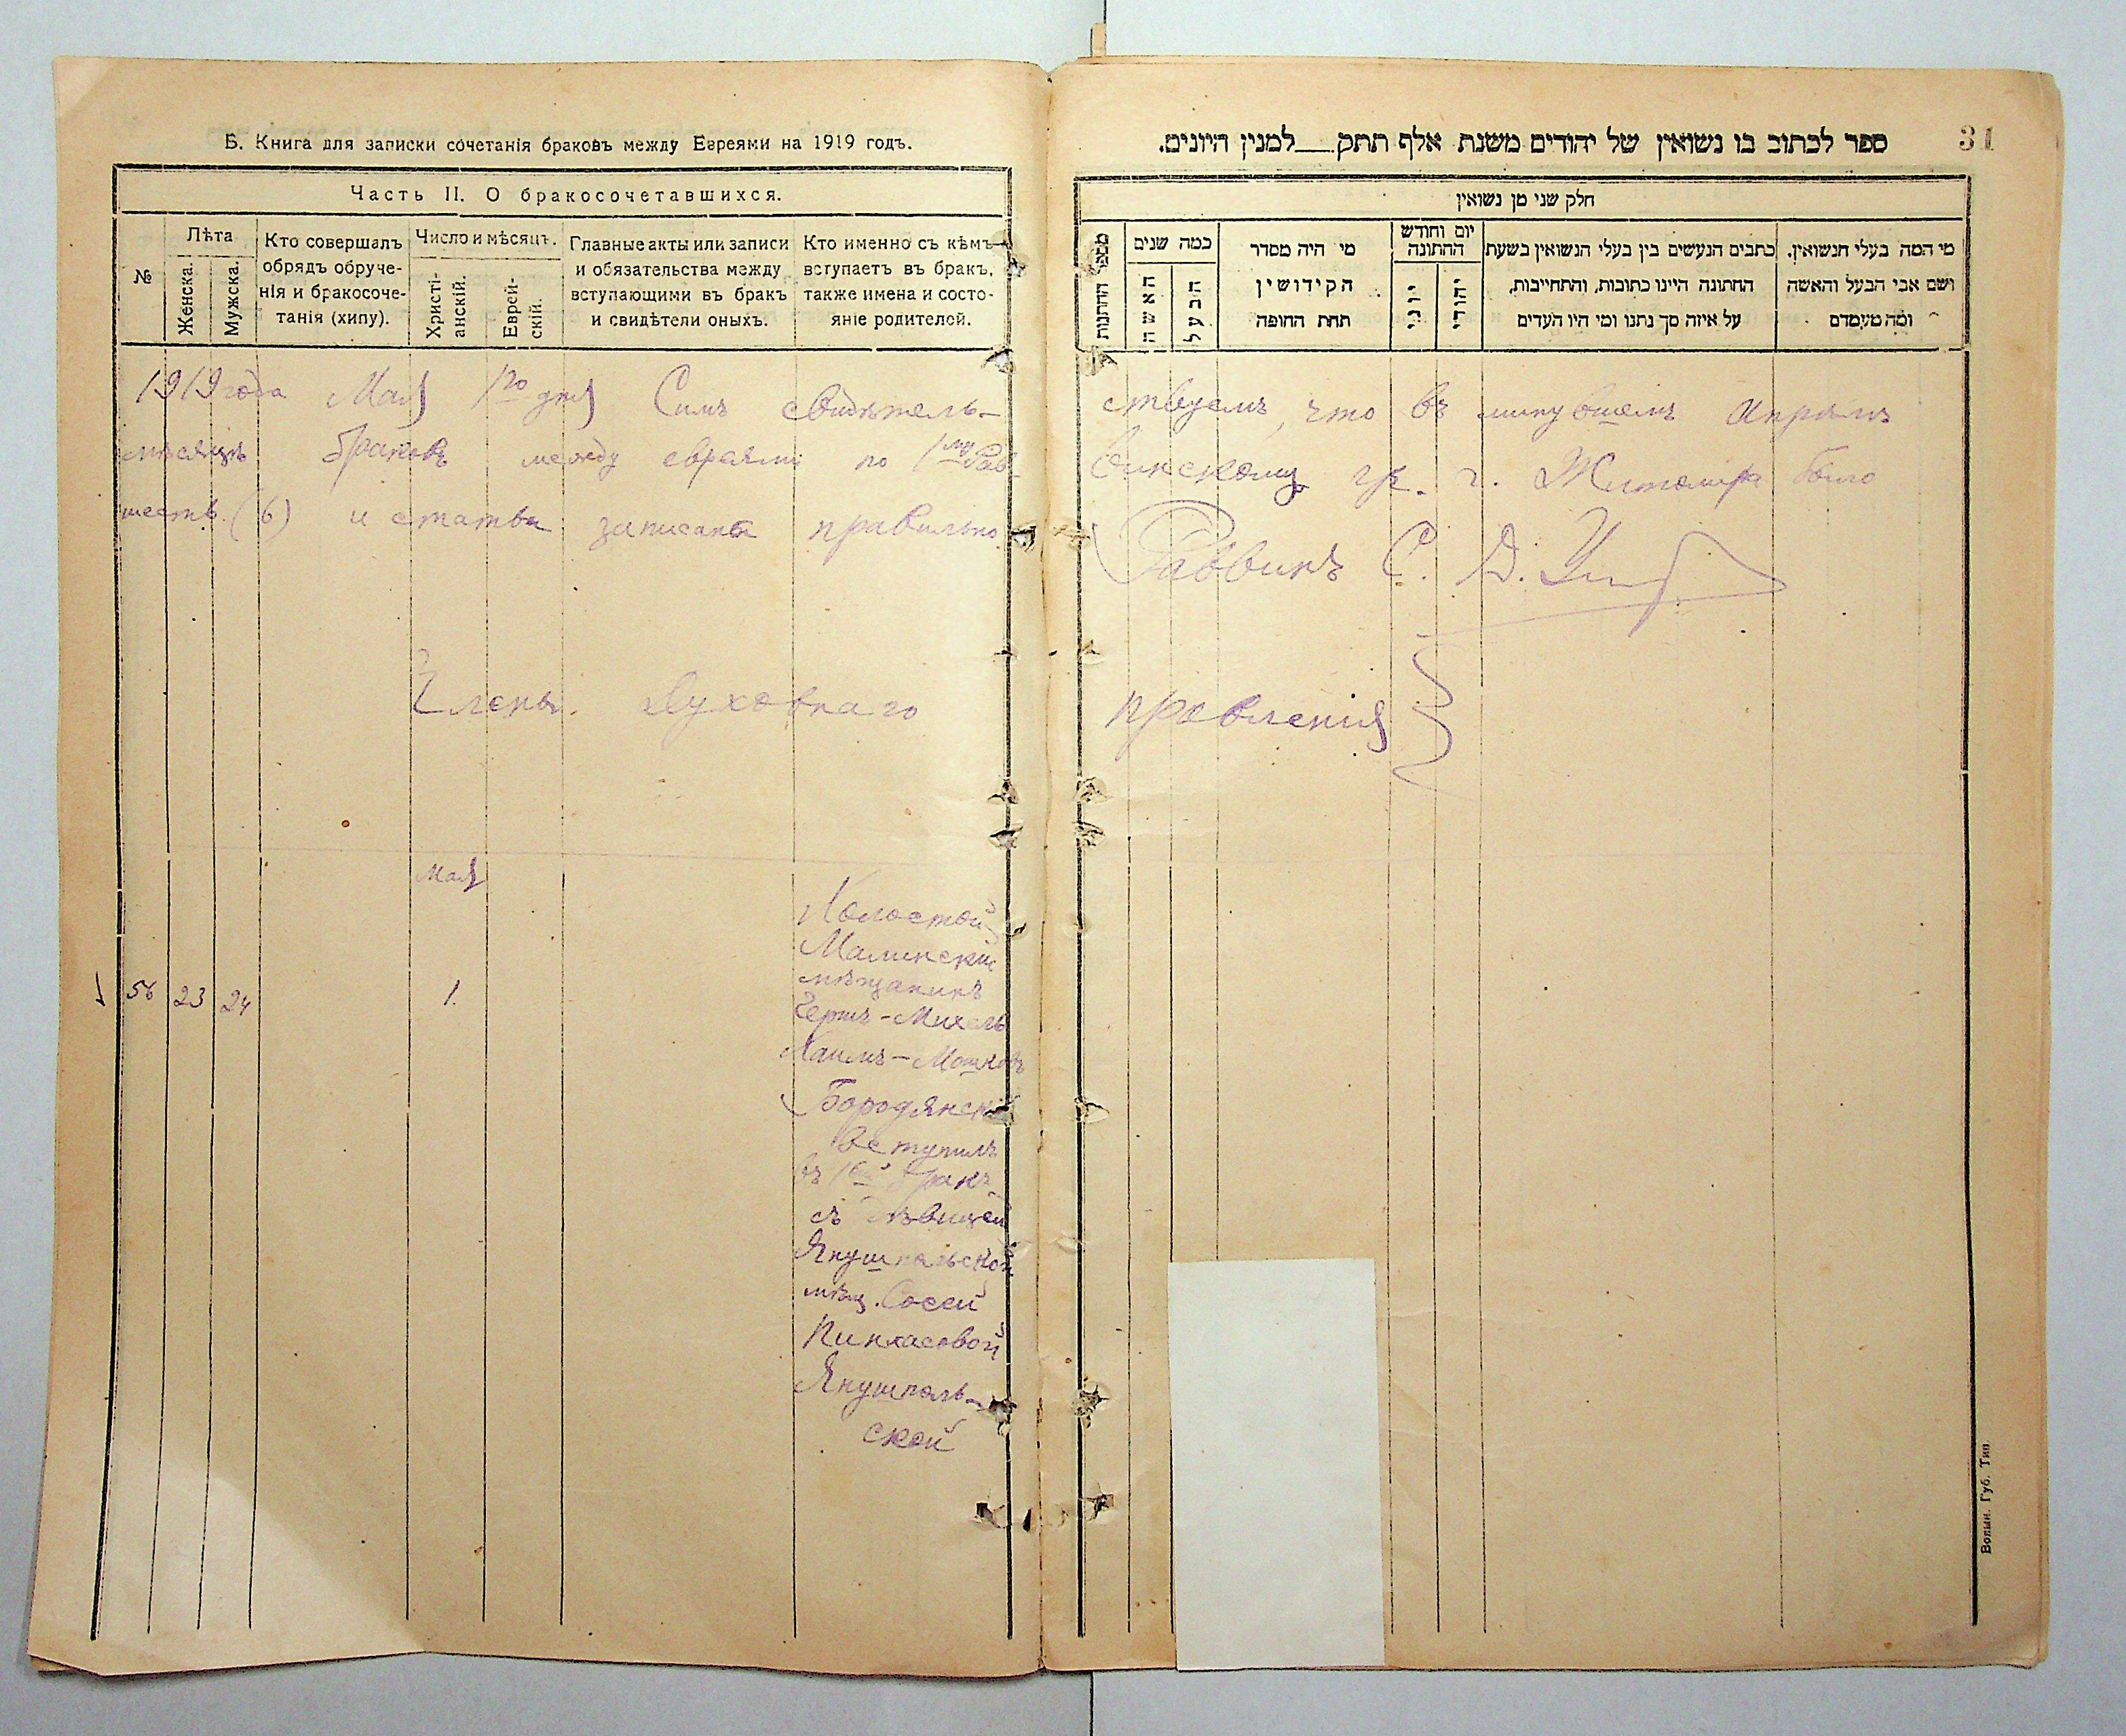 Б. Книга для записки сочетанія браковъ между Евреями на 1919 годъ.
Часть II. О бракосочетавшихся.
№
Лѣта
Женска.
Мужска.
Кто совершалъ
обрядъ обруче-
нія и бракосоче-
танія (хипу).
Число и мѣсяцъ.
Христі-
анскій.
Еврей-
скій.
Главные акты или записи
и обязательства между
вступающими въ бракъ
и свидѣтели оныхъ.
Кто именно съ кѣмъ
вступаетъ въ бракъ,
также имена и состо-
яніе родителей.
31
ספר לכתוב בו נשואין של יהודים משנת אלף תתק__למנין היונים.
חלק שני מן נשואין
מספר החתונות
כמה שנים
האשה
הבעל
מי היה מסדר
הקידושין
תחת החופה
יום וחודש
החתונה
יוני
יהודי
כתבים הנעשים בין בעלי הנשואין בשעת
החתונה היינו כתובות, והתחייבות,
על איזה סך נתנו ומי היו העדים
מי המה בעלי הנשואין.
ושם אבי הבעל והאשה
ומה מעמדם
1919 года Мая 1го дня Симъ свидѣтель-
ствуемъ, что въ минувшемъ Апрѣлѣ
мѣсяцѣ браковъ между евреями по 1му Рав
винскому г. Житомира было
шесть (6) и статьи записаны правильно
Раввинъ С. Д.
Члены Духовнаго
правленія
Мая
56 23 24 1.
Холостой
Малинскій
мѣщанинъ
Гершъ-Михель
Хаимъ-Мошковъ
Бородянскій
вступилъ
въ 1ый бракъ
съ дѣвицей
Янушпольской
мѣщ. Сосей
Пинхасовой
Янушполь-
ской
Волын. Губ. Тип